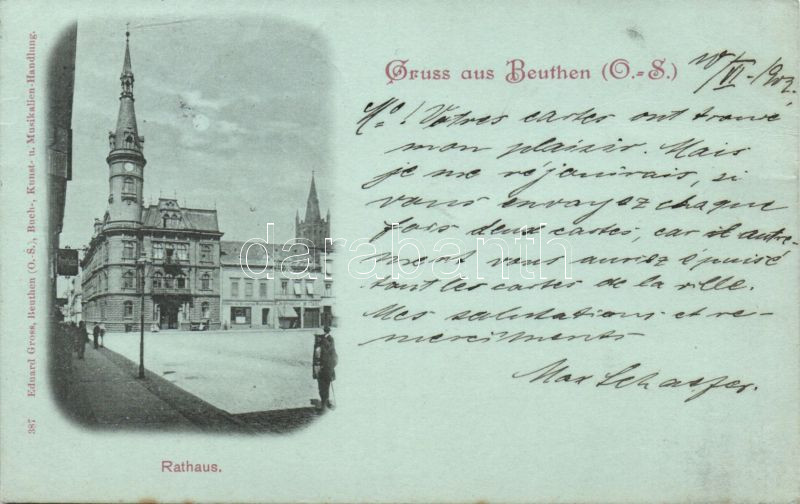 387 Eduard Gross, Beuthen (O.-S.), Buch-, Kunst- u. Musikalien-Handlung.
Gruss aus Beuthen (O.-S.)
VI
Vôtres cartes ont trouvé
mon plaisir. Mais
je me réjouirais, si
vous envoyez chaque
fois deux cartes, car il autre-
ment vous auriez épuisé
tout les cartes de la ville.
Mes salutations et re-
merciments
Max Schaefer.
darabanth
Rathaus.